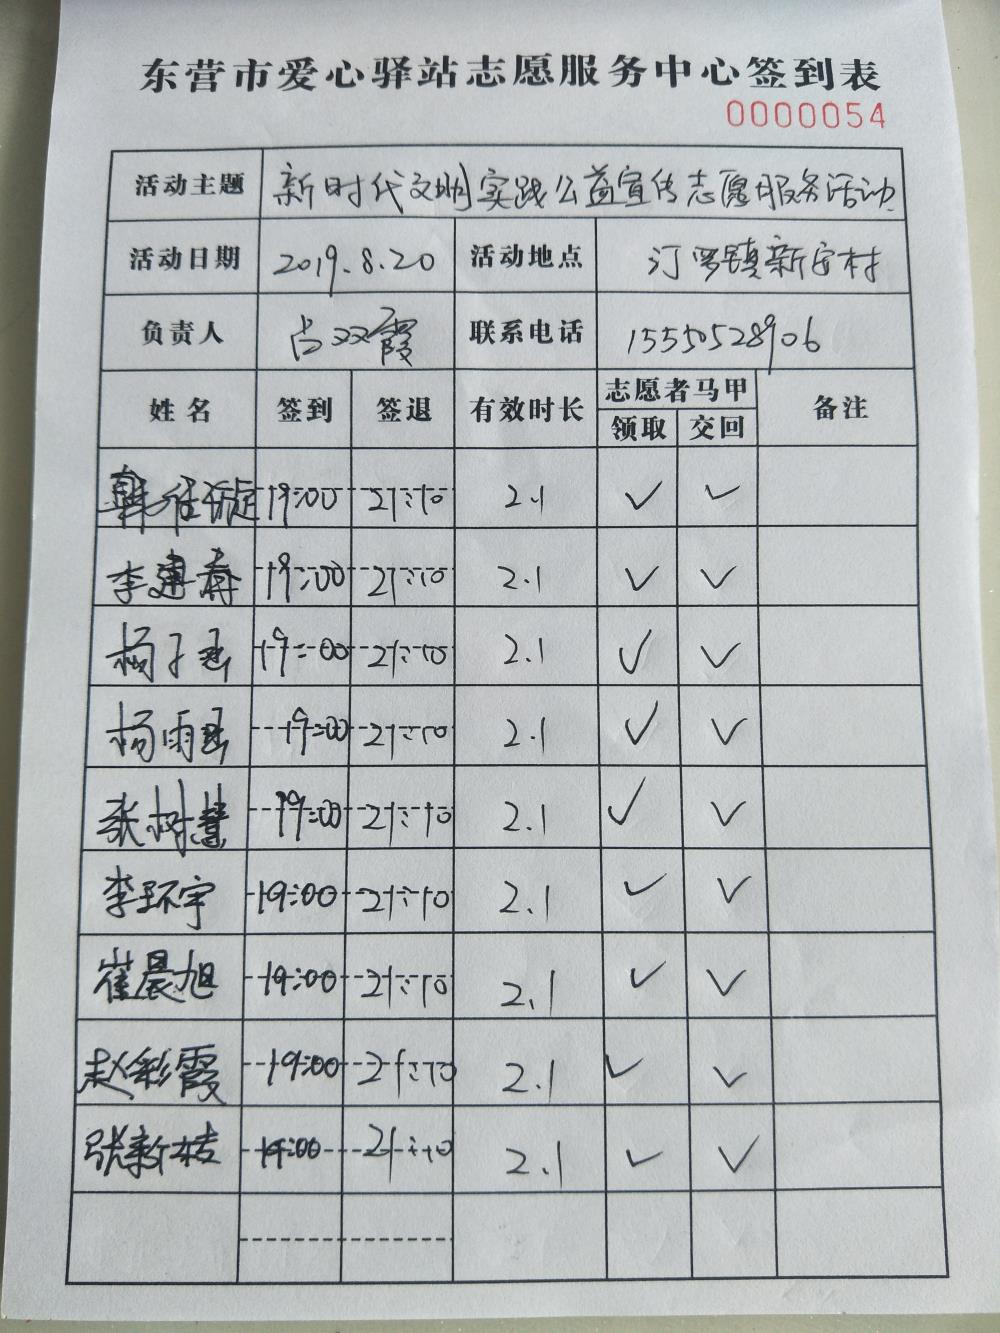 东营市爱心驿站志愿服务中心签到表
0000054
活动主题 新时代文明实践公益宣传志愿服务活动
活动日期 2019.8.20 活动地点 汀罗镇新安村
负责人 吕双霞 联系电话 15550528906
姓名 签到 签退 有效时长 志愿者马甲 备注
领取 交回
19:00 21:10 2.1 ✓ ✓
李建春 19:00 21:10 2.1 ✓ ✓
杨子 19:00 21:10 2.1 ✓ ✓
杨雨 19:00 21:10 2.1 ✓ ✓
张树慧 19:00 21:10 2.1 ✓ ✓
李环宇 19:00 21:10 2.1 ✓ ✓
崔晨旭 19:00 21:10 2.1 ✓ ✓
赵彩霞 19:00 21:10 2.1 ✓ ✓
张新枝 19:00 21:10 2.1 ✓ ✓